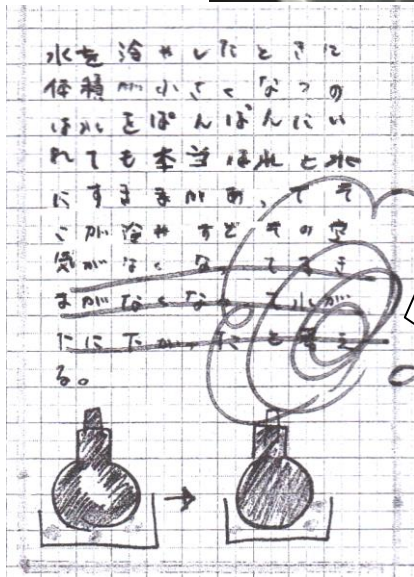 水を冷やしたときに
体積が小さくなつの
は水をぱんぱんにい
れても本当は水と水
にすきまがあってそ
こが冷やすとその空
気がなくなってすき
まがなくなって水が
に下がったと考え
る。